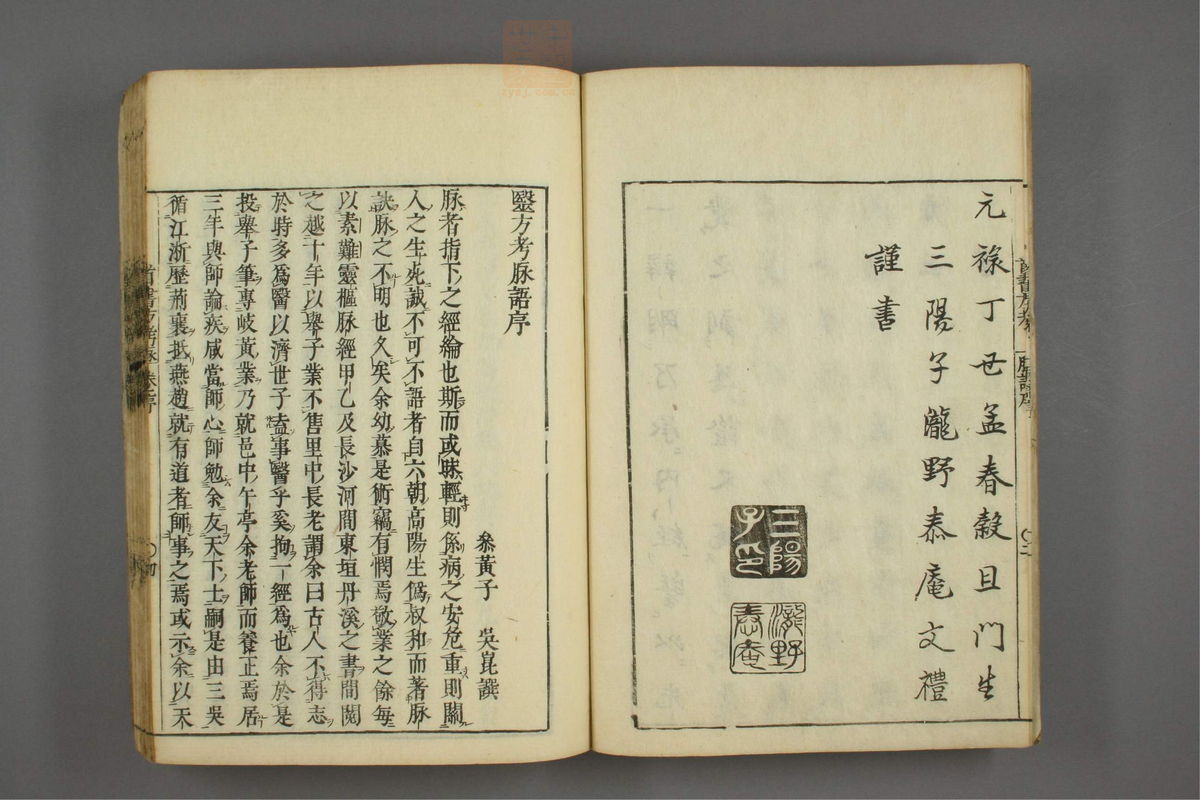 元祿丁丑孟春穀旦門生
三陽子瀧野泰庵文禮
謹書
三陽
子印
瀧野
泰庵
毉方考脉語序
叅黃子 吳崑譔
脉者指下之經綸也斯而或昧輕則係病之安危重則關
人之生死誠不可不語者自六朝高陽生僞叔和而著脉
訣脉之不明也久矣余幼慕是術竊有憫焉敬業之餘每
以素難靈樞脉經甲乙及長沙河間東垣丹溪之書間閱
之越十年以舉子業不售里中長老謂余曰古人不得志
於時多爲醫以濟世子盍事醫乎奚拘一經爲也余於是
投舉子筆專岐黃業乃就邑中午亭余老師而養正焉居
三年與師論疾咸當師心師勉余友天下士嗣是由三吳
循江浙歷荊襄抵燕趙就有道者師事之焉或示余以天